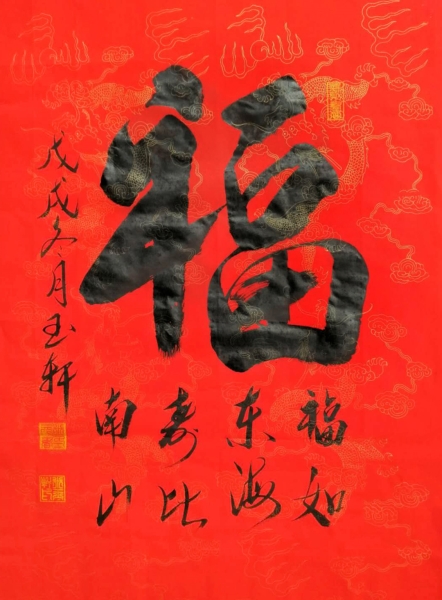 福
福如
东海
寿比
南山
戊戌冬月玉轩